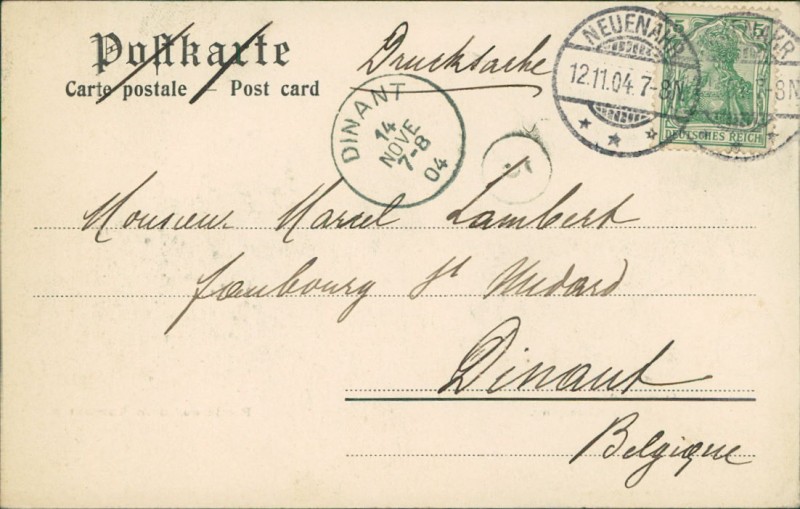 Postkarte
Carte postale – Post card
Drucksache
NEUENAHR
12.11.04. 7-8N
5 5
DEUTSCHES REICH
AHR
7-8N
DINANT
14
NOVE
7-8
04
Monsieur Marcel Lambert
faubourg St Médard
Dinant
Belgique